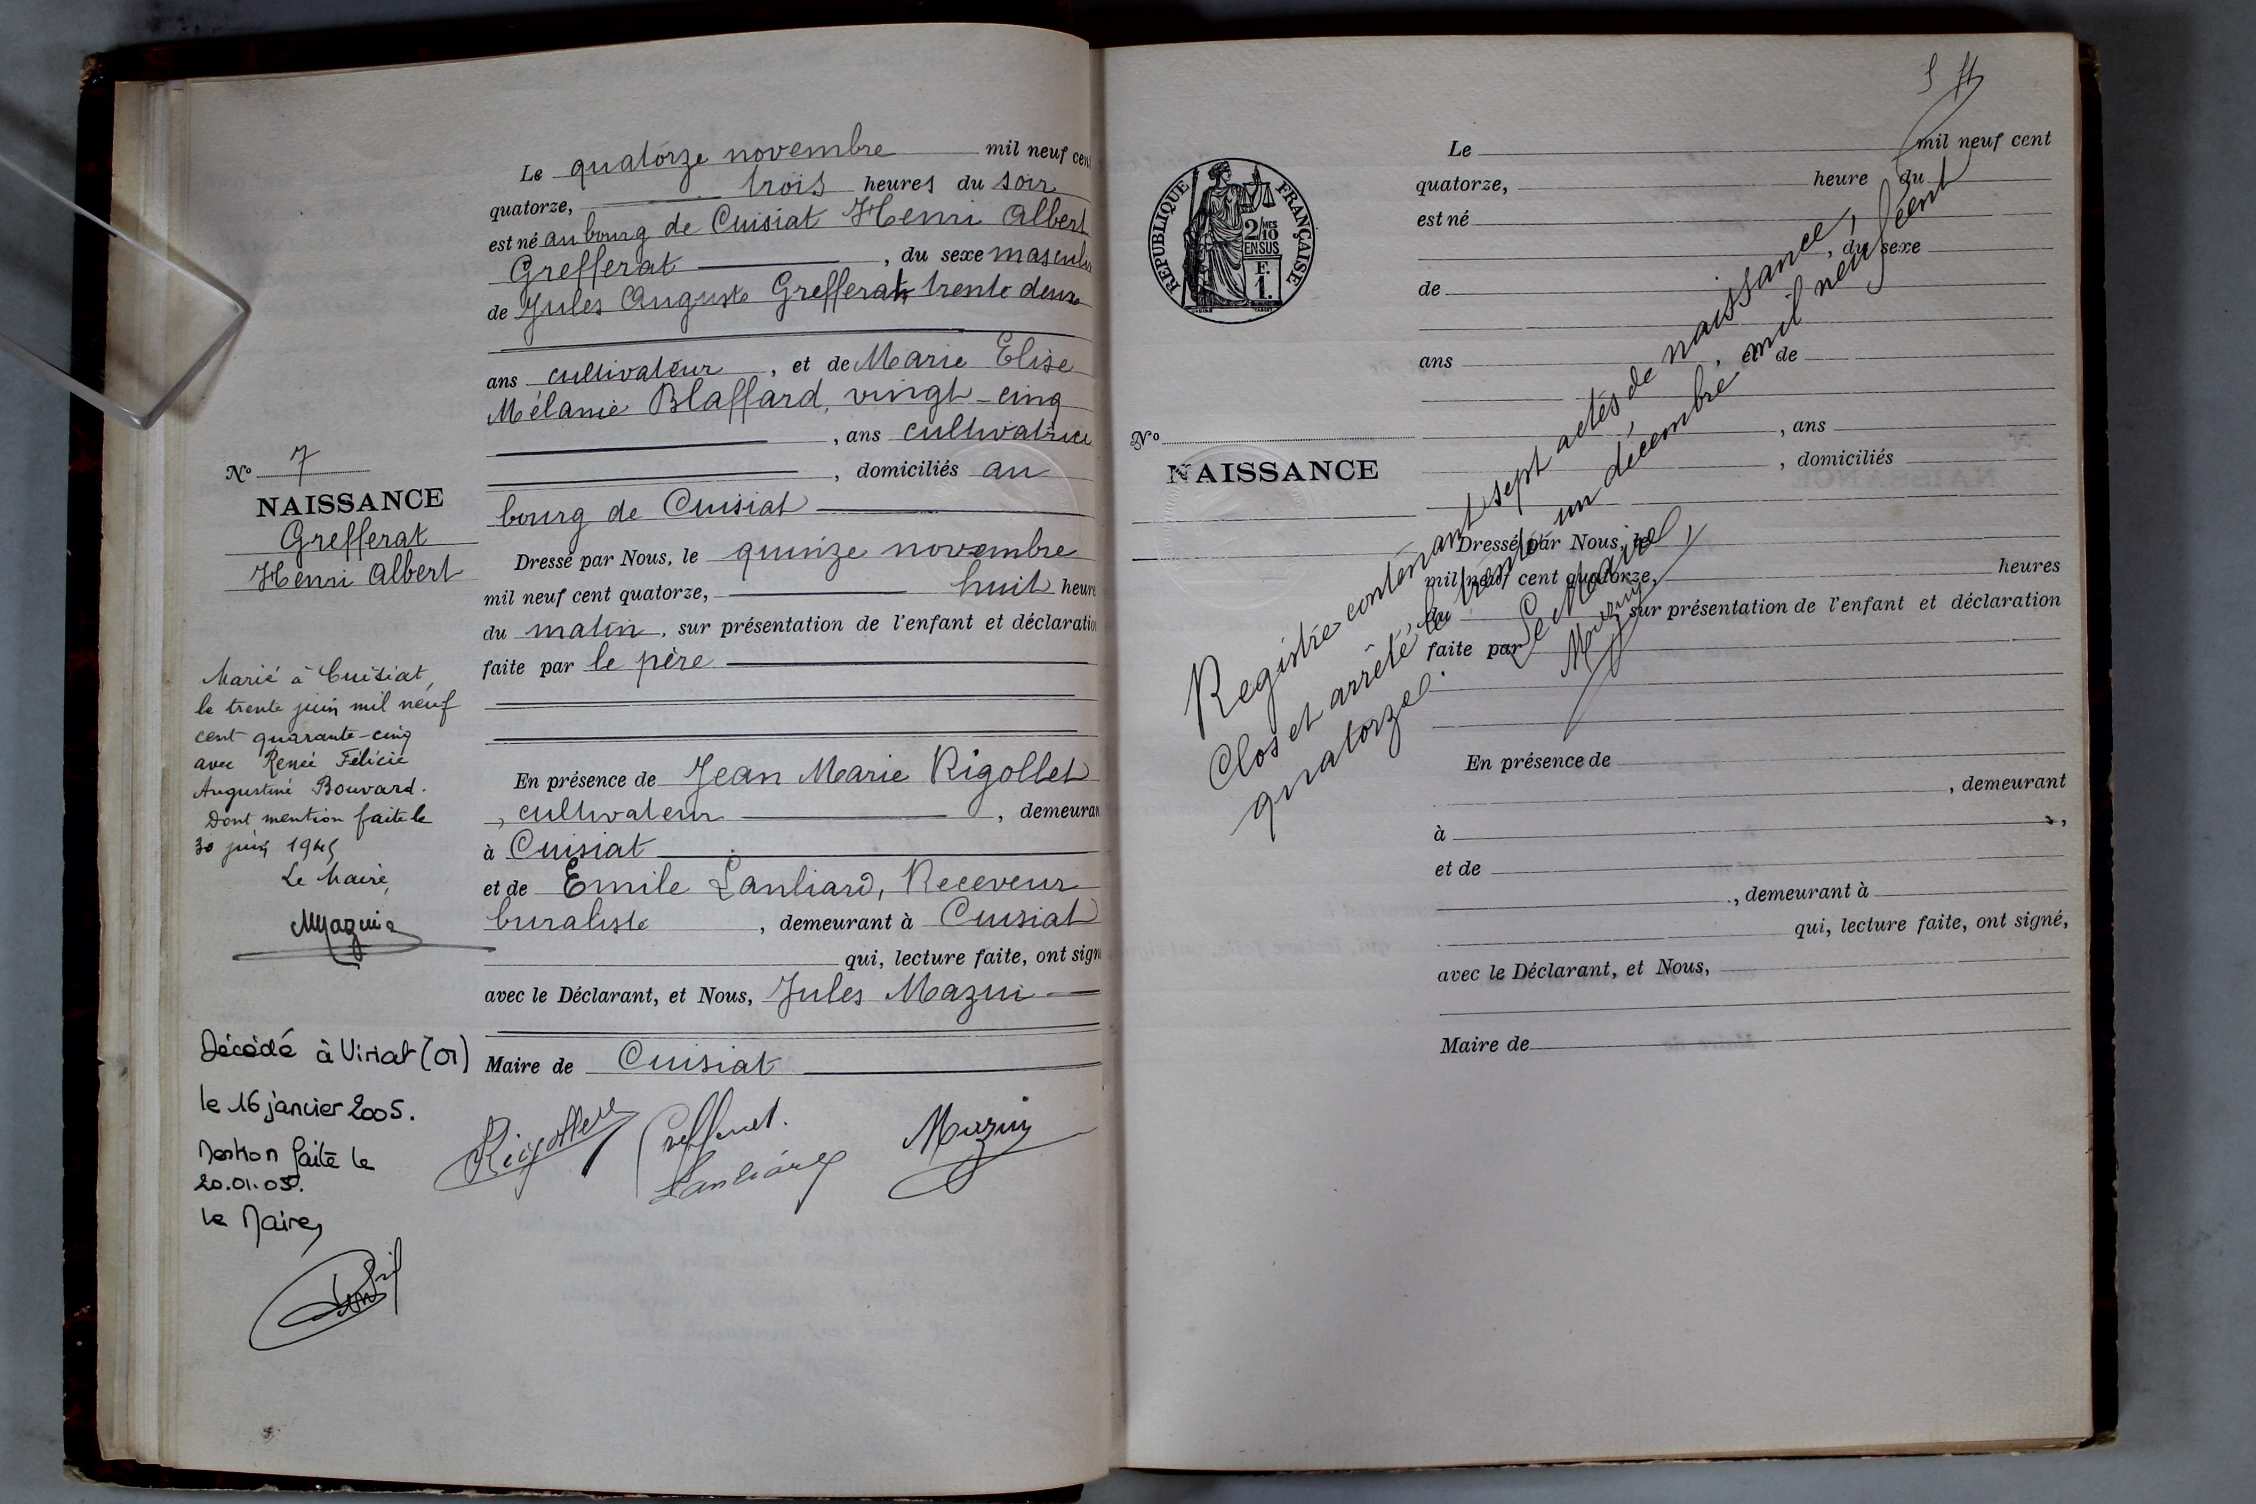 Le quatorze novembre mil neuf cent
quatorze, trois heures du soir
est né au bourg de Cuisiat Henri Albert
Grefferat, du sexe masculin
de Jules Auguste Grefferat, trente deux
ans cultivateur, et de Marie Elise
Mélanie Blaffard, vingt-cinq
, ans cultivatrice
, domiciliés au
bourg de Cuisiat
Dressé par Nous, le quinze novembre
mil neuf cent quatorze, huit heures
du matin, sur présentation de l'enfant et déclaration
faite par le père
En présence de Jean Marie Rigollet
, cultivateur, demeurant
à Cuisiat
et de Emile Lanliard, Receveur
buraliste, demeurant à Cuisiat
qui, lecture faite, ont signé
avec le Déclarant, et Nous, Jules Mazui
Maire de Cuisiat
Rigollet Grefferat Mazuy
Lanliard
N° 7
NAISSANCE
Grefferat
Henri Albert
Marié à Cuisiat,
le trente juin mil neuf
cent quarante-cinq
avec Renée Félicie
Augustine Bouvard.
Dont mention faite le
30 juin 1945
Le Maire,
Décédé à Viriat (01)
le 16 janvier 2005.
Mention faite le
20.01.05.
Le Maire,
5
Le mil neuf cent
quatorze, heure du
est né
, du sexe
de
ans , et de
, ans
, domiciliés
Dressé par Nous, le
mil neuf cent quatorze, heures
du , sur présentation de l'enfant et déclaration
faite par
En présence de
, demeurant
à ,
et de
, demeurant à
qui, lecture faite, ont signé,
avec le Déclarant, et Nous,
Maire de
RÉPUBLIQUE FRANÇAISE
2/MES
10
EN SUS
F.
1.
N°
NAISSANCE
Registre contenant sept actes de naissance,
Clos et arrêté le trente un décembre mil neuf cent
quatorze.
Le Maire,
Mazuy